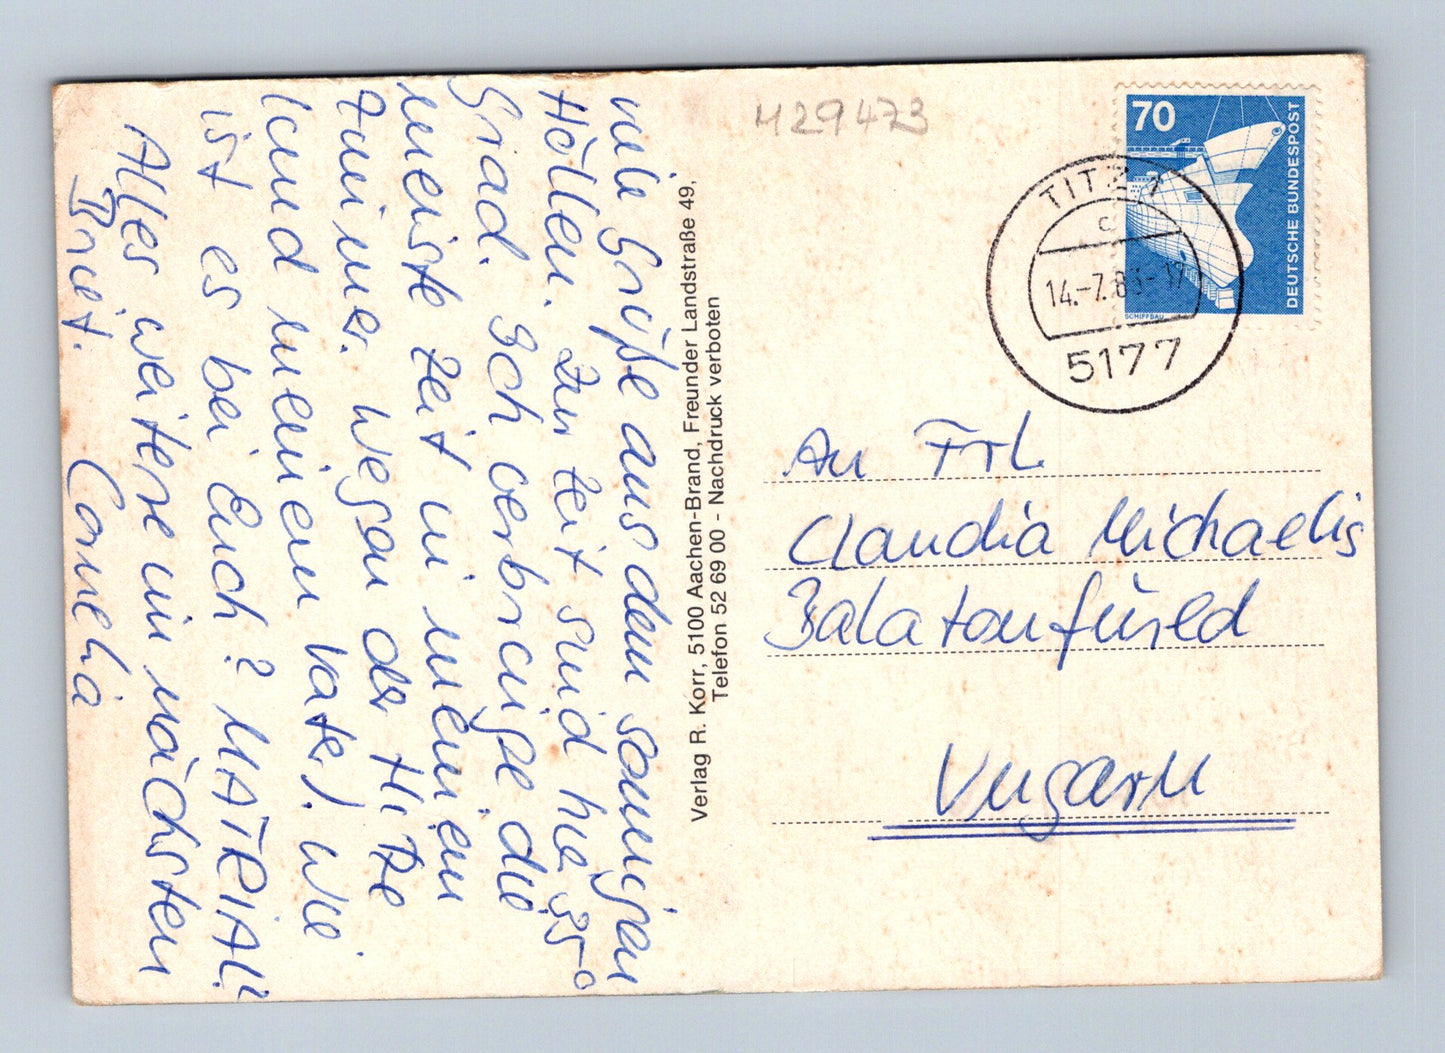 viele Grüße aus dem sonnigen
Höllen. Zur Zeit sind hie 35°
Grad. Ich verbringe die
meiste Zeit in meinem
Zimmer wegen der Hitze
(und meinem Kater). Wie
ist es bei Euch? MATRIAL!!
Alles weitere im nächsten
Brief. Cornelia
Verlag R. Korr, 5100 Aachen-Brand, Freunder Landstraße 49,
Telefon 52 69 00 - Nachdruck verboten
M29473
70
DEUTSCHE BUNDESPOST
SCHIFFBAU
TITZ 1
C
14.-7.83-17
5177
An Frl.
Claudia Michaelis
Balatonfüred
Ungarn